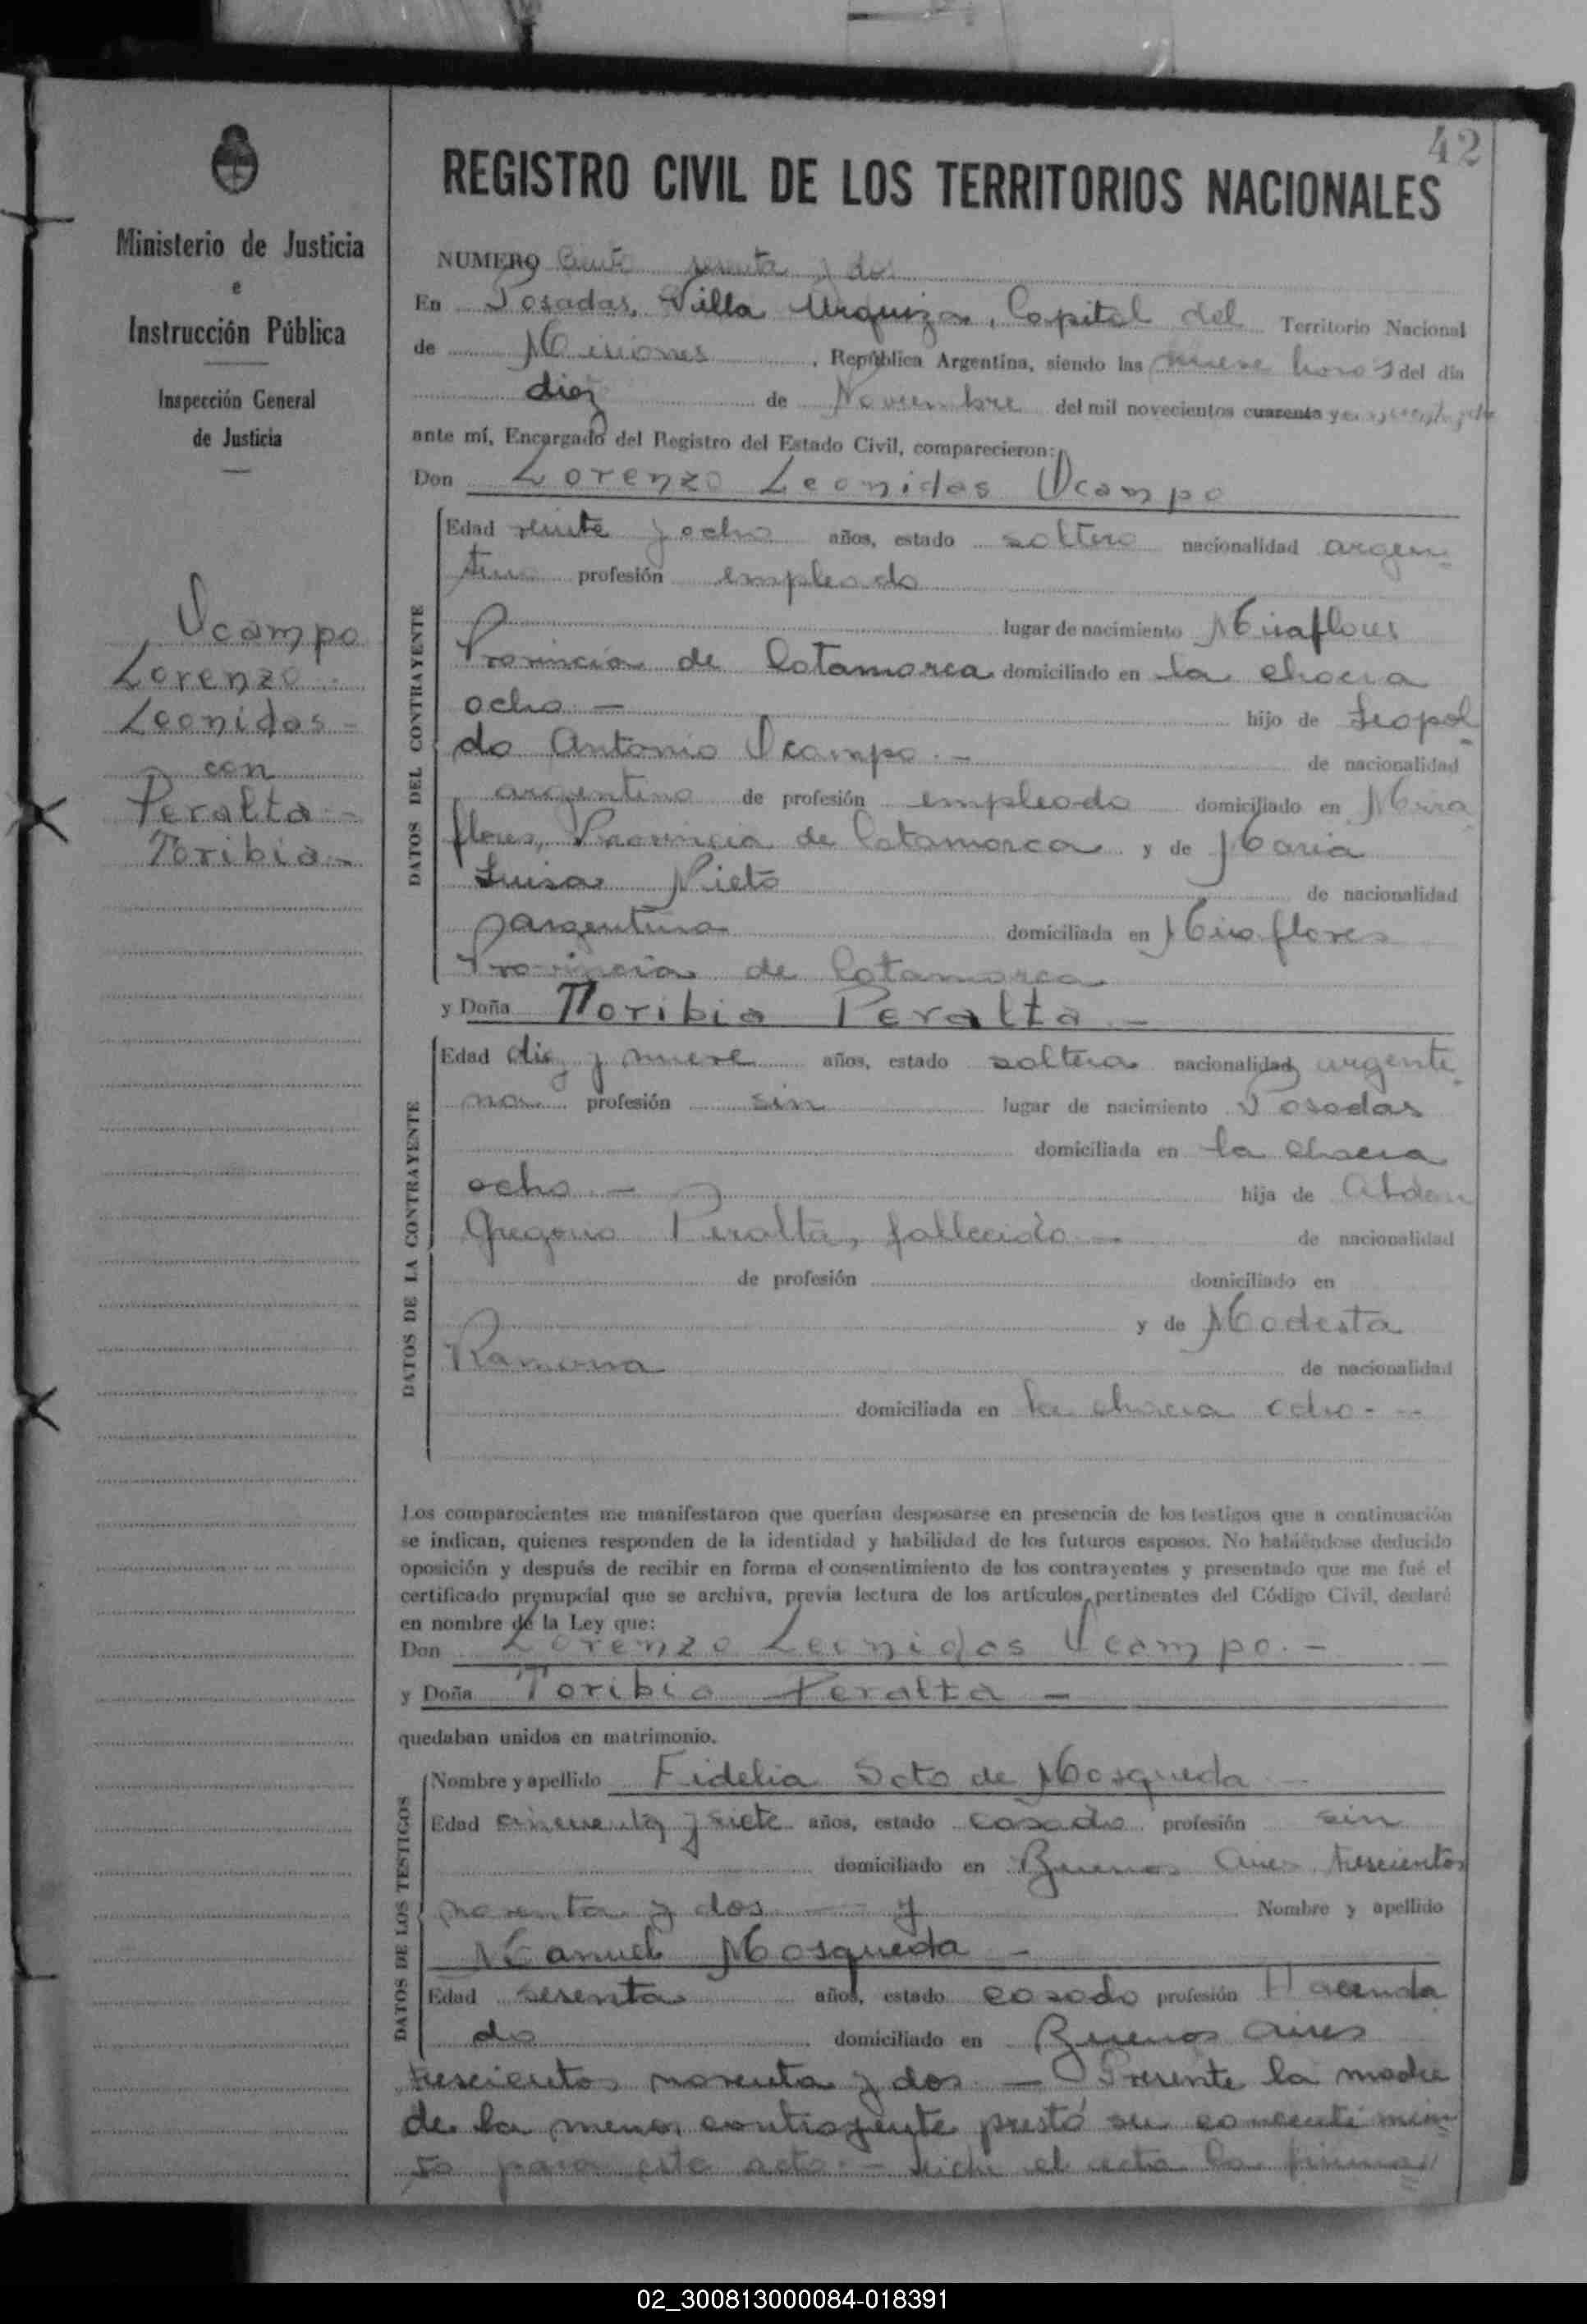 42
Ministerio de Justicia
e
Instrucción Pública
Inspección General
de Justicia
Ocampo
Lorenzo
Leonidas -
con
Peralta -
Toribia -
REGISTRO CIVIL DE LOS TERRITORIOS NACIONALES
NUMERO Ciento sesenta y dos
En Posadas, Villa Urquiza, Capital del Territorio Nacional
de Misiones, República Argentina, siendo las nueve horas del día
diez de Noviembre del mil novecientos cuarenta y
ante mí, Encargado del Registro del Estado Civil, comparecieron:
Don Lorenzo Leonidas Ocampo
DATOS DEL CONTRAYENTE
Edad veinte y ocho años, estado soltero nacionalidad argen
tino profesión empleado
lugar de nacimiento Miraflores
Provincia de Catamarca domiciliado en la chacra
ocho. - hijo de Leopol
do Antonio Ocampo. - de nacionalidad
argentino de profesión empleado domiciliado en Mira
flores, Provincia de Catamarca y de Maria
Luisa Nieto de nacionalidad
argentina domiciliada en Miraflores
Provincia de Catamarca
y Doña Toribia Peralta -
DATOS DE LA CONTRAYENTE
Edad diez y nueve años, estado soltera nacionalidad argenti
na profesión sin lugar de nacimiento Posadas
domiciliada en la chacra
ocho. - hija de
Gregorio Peralta, fallecido - de nacionalidad
de profesión domiciliado en
y de Modesta
Ramona de nacionalidad
domiciliada en la chacra ocho. - -
Los comparecientes me manifestaron que querían desposarse en presencia de los testigos que a continuación
se indican, quienes responden de la identidad y habilidad de los futuros esposos. No habiéndose deducido
oposición y después de recibir en forma el consentimiento de los contrayentes y presentado que me fué el
certificado prenupcial que se archiva, previa lectura de los artículos pertinentes del Código Civil, declaré
en nombre de la Ley que:
Don Lorenzo Leonidas Ocampo. -
y Doña Toribia Peralta -
quedaban unidos en matrimonio.
DATOS DE LOS TESTIGOS
Nombre y apellido Fidelia Soto de Mosqueda -
Edad cincuenta y siete años, estado casada profesión sin
domiciliado en Buenos Aires trescientos
noventa y dos - y Nombre y apellido
Manuel Mosqueda -
Edad sesenta años, estado casado profesión Hacenda
do domiciliado en Buenos Aires
trescientos noventa y dos. - Presente la madre
de la menor contrayente prestó su concentimien
to para este acto. - leida el acta la firman
02_300813000084-018391